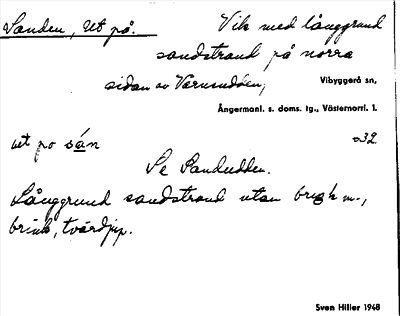 Sanden, Ut på. Vik med långgrund
sandstrand på norra
sidan av Värnsudden,
Vibyggerå sn,
Ångermanl. s. doms. tg., Västernorrl. l.
ut po sán 032
Se Sandudden.
Långgrund sandstrand utan brink m.,
brink, tvärdjup.
Sven Hiller 1948